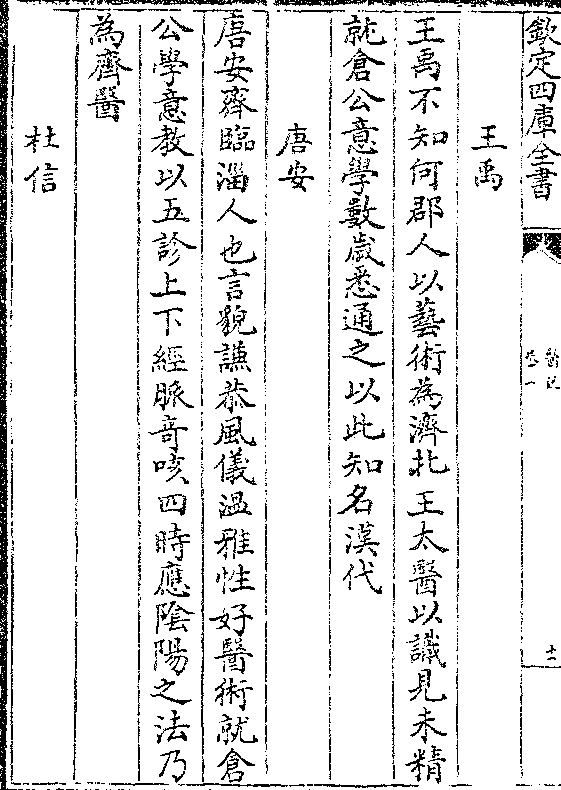 欽定四庫全書
醫說
卷一
十一
王禹
王禹不知何郡人以藝術為濟北王太醫以識見未精
就倉公意學數歲悉通之以此知名漢代
唐安
唐安齊臨淄人也言貌謙恭風儀溫雅性好醫術就倉
公學意教以五診上下經脈竒咳四時應陰陽之法乃
為齊醫
杜信